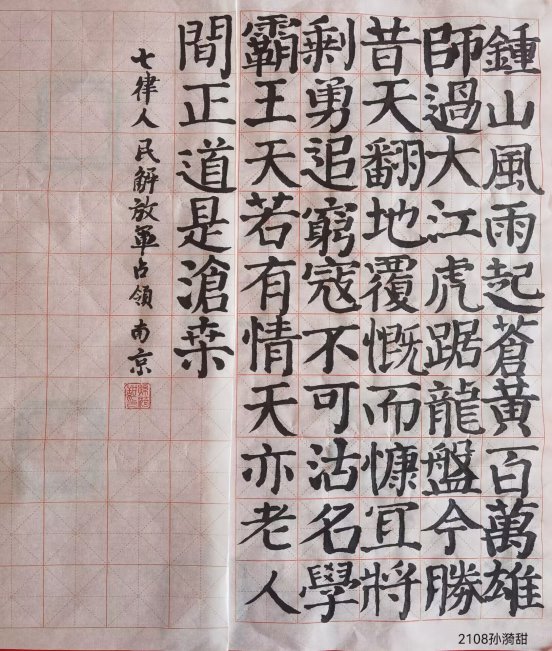 鍾山風雨起蒼黃百萬雄
師過大江虎踞龍盤今勝
昔天翻地覆慨而慷宜將
剩勇追窮寇不可沽名學
霸王天若有情天亦老人
間正道是滄桑
七律人民解放軍占領南京
2108孙漪甜